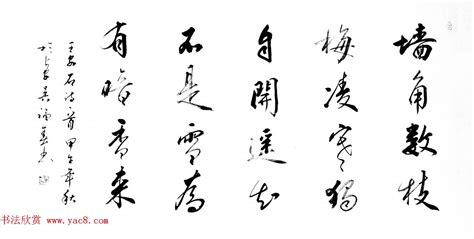 墙角数枝
梅凌寒獨
自開遥知
不是雪為
有暗香来
王安石诗一首甲午年秋
书法欣赏 www.yac8.com